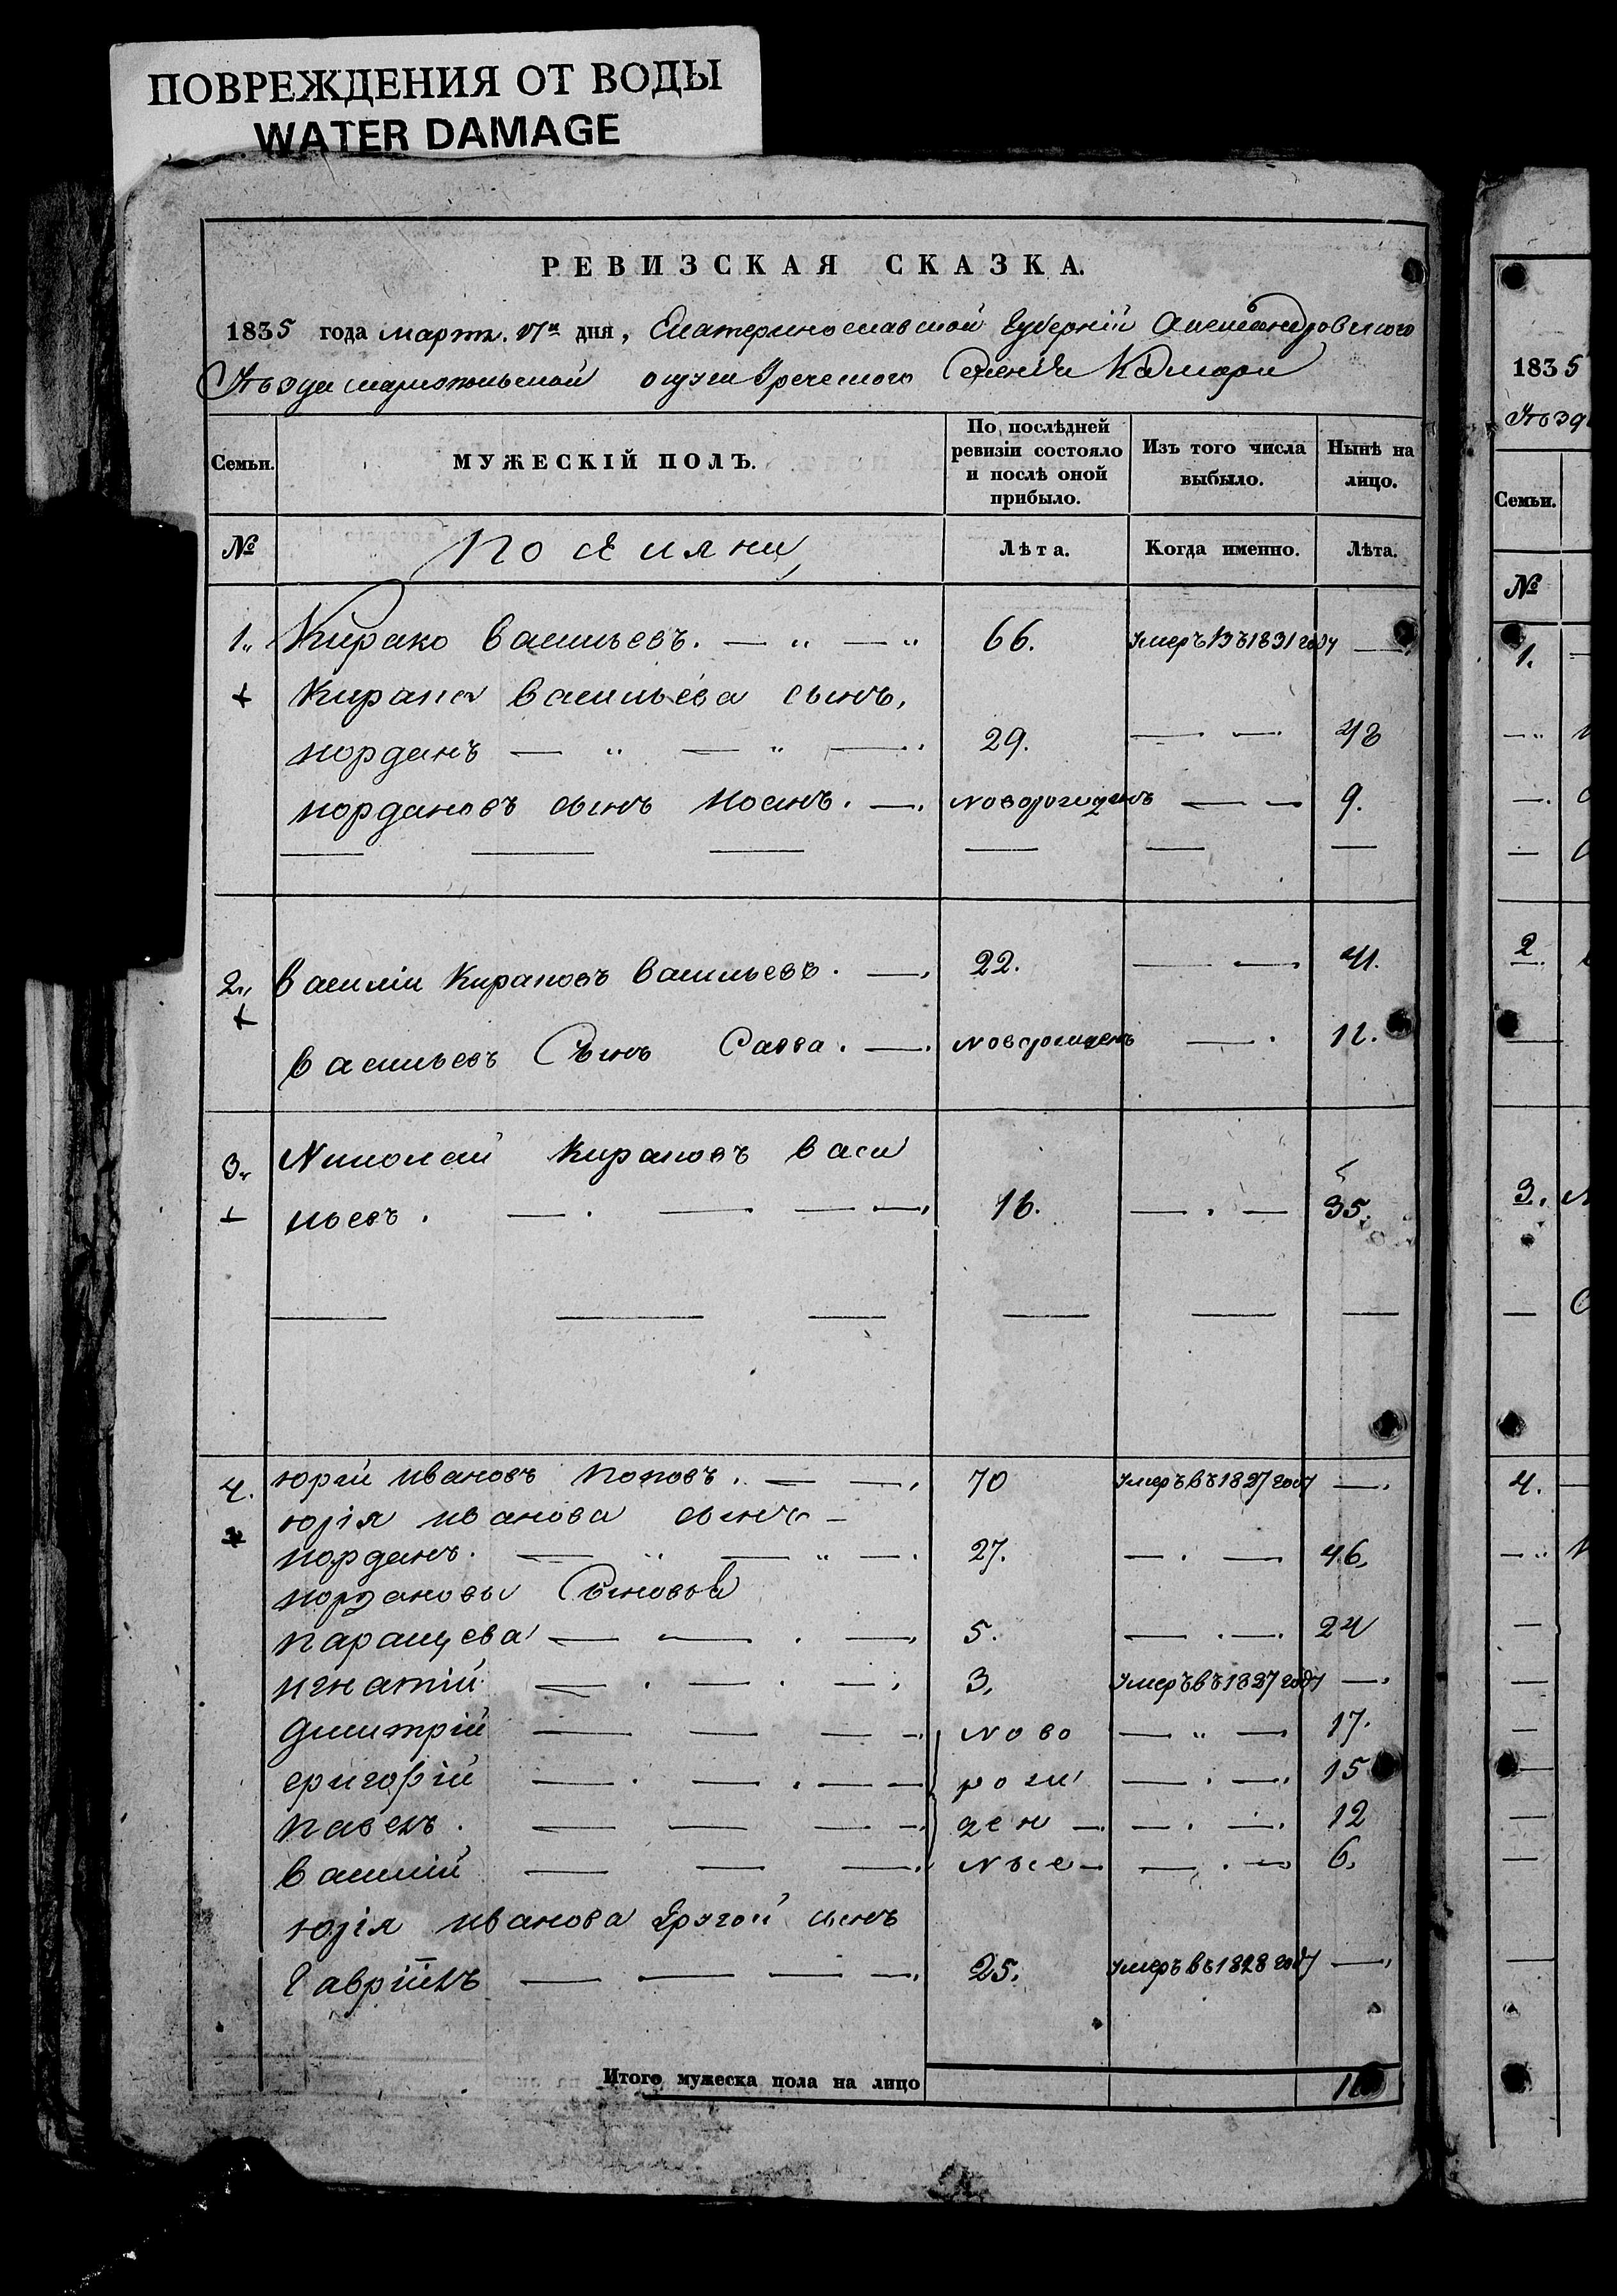 ПОВРЕЖДЕНИЯ ОТ ВОДЫ
WATER DAMAGE
РЕВИЗСКАЯ СКАЗКА.
1835 года марта 17го дня, Екатеринославской Губерніи Александровского
Уѣзда мариопольской округи Греческого Селенія Камари
Семьи.
МУЖЕСКІЙ ПОЛЪ.
По послѣдней ревизіи состояло и послѣ оной прибыло.
Изъ того числа выбыло.
Нынѣ на лицо.
№
Поселяни
Лѣта.
Когда именно.
Лѣта.
1. Кирако васильевъ. 66. Умеръ въ 1831 году
Кирака васильева сынъ,
иорданъ 29. 48
иордановъ сынъ иоанъ. новорожденъ 9.
2. василіи Кираковъ васильевъ. 22. 41.
васильевъ Сынъ Савва. новорожденъ 12.
3. Николай Кираковъ васи
льевъ. 16. 35.
4. юрій ивановъ поповъ. 70 Умеръ въ 1827 году
юрія иванова сынъ
иорданъ. 27. 46.
иордановы Сыновья
парацева 5. 24
игнатій 3. Умеръ въ 1827 году
дмитрій ново 17.
григорій рож 15
павелъ. ден 12
василій ные 6.
юрія иванова другой сынъ
Гавріилъ 25. Умеръ въ 1828 году
Итого мужеска пола на лицо
1835
Уѣзд
Семьи.
№
1.
2.
3.
4.